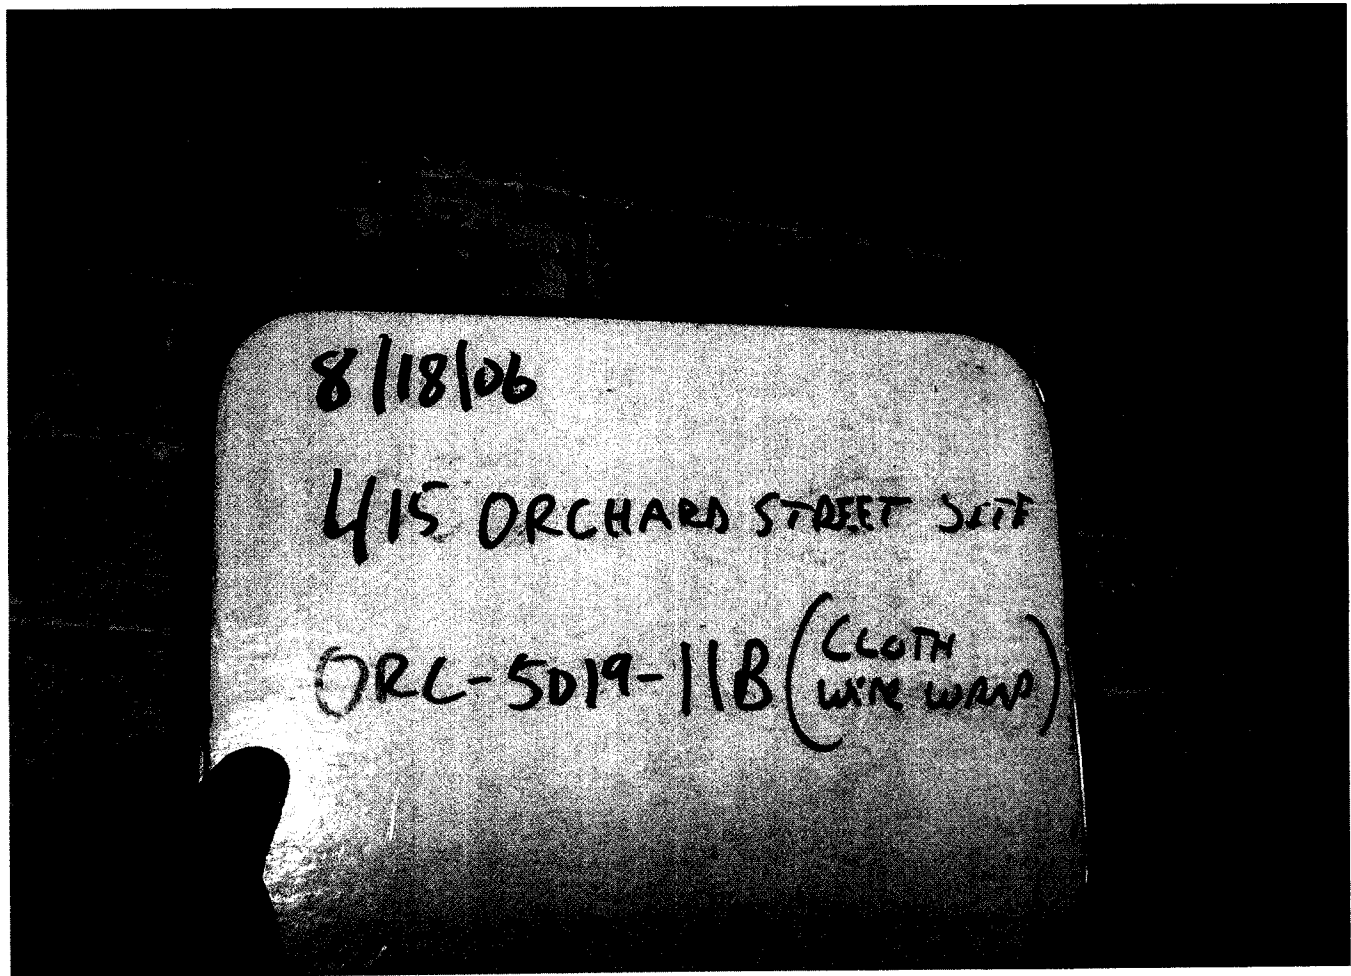 8/18/06
415 ORCHARD STREET SITE
ORC-5D19-11B (CLOTH
WIRE WRAP)